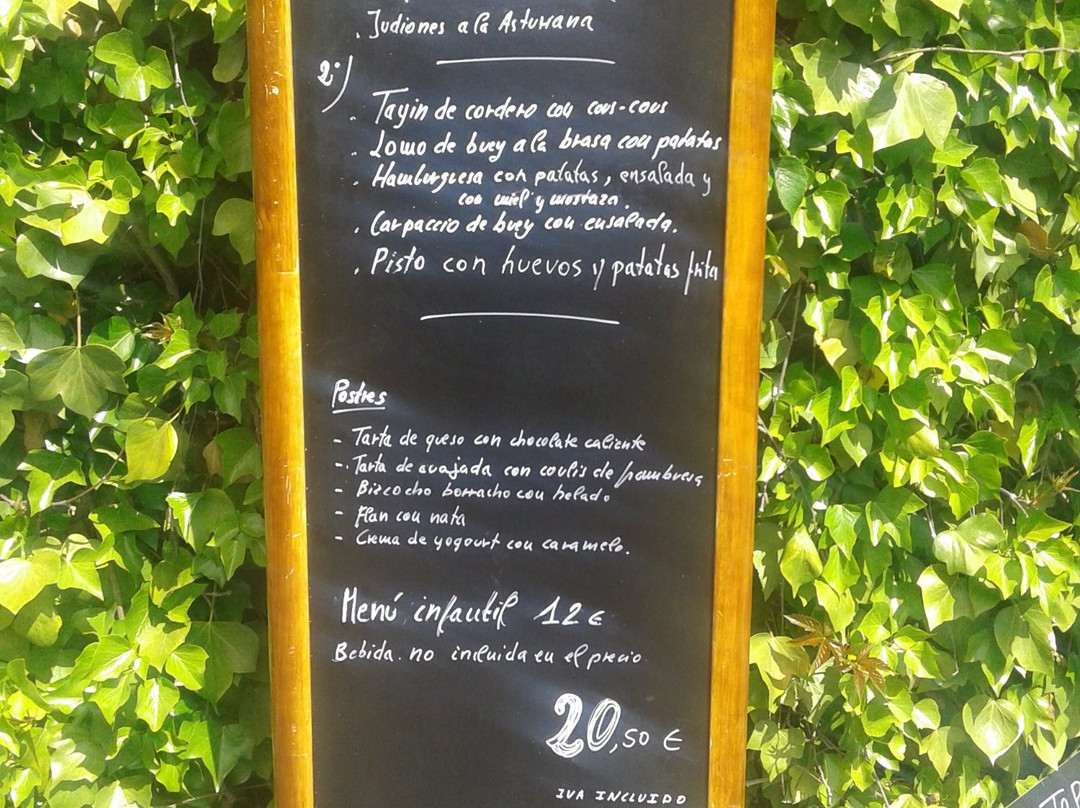 . Judiones a la Asturiana
2º)
. Tayin de cordero con cous-cous
. Lomo de buey a la brasa con patatas
. Hamburguesa con patatas, ensalada y
con miel y mostaza.
. Carpaccio de buey con ensalada.
. Pisto con huevos y patatas frita
Postres
- Tarta de queso con chocolate caliente
-. Tarta de cuajada con coulis de frambuesa
- Bizcocho borracho con helado
- Flan con nata
- Crema de yogourt con caramelo.
Menú infantil 12 €
Bebida. no incluida en el precio
20,50 €
IVA INCLUIDO